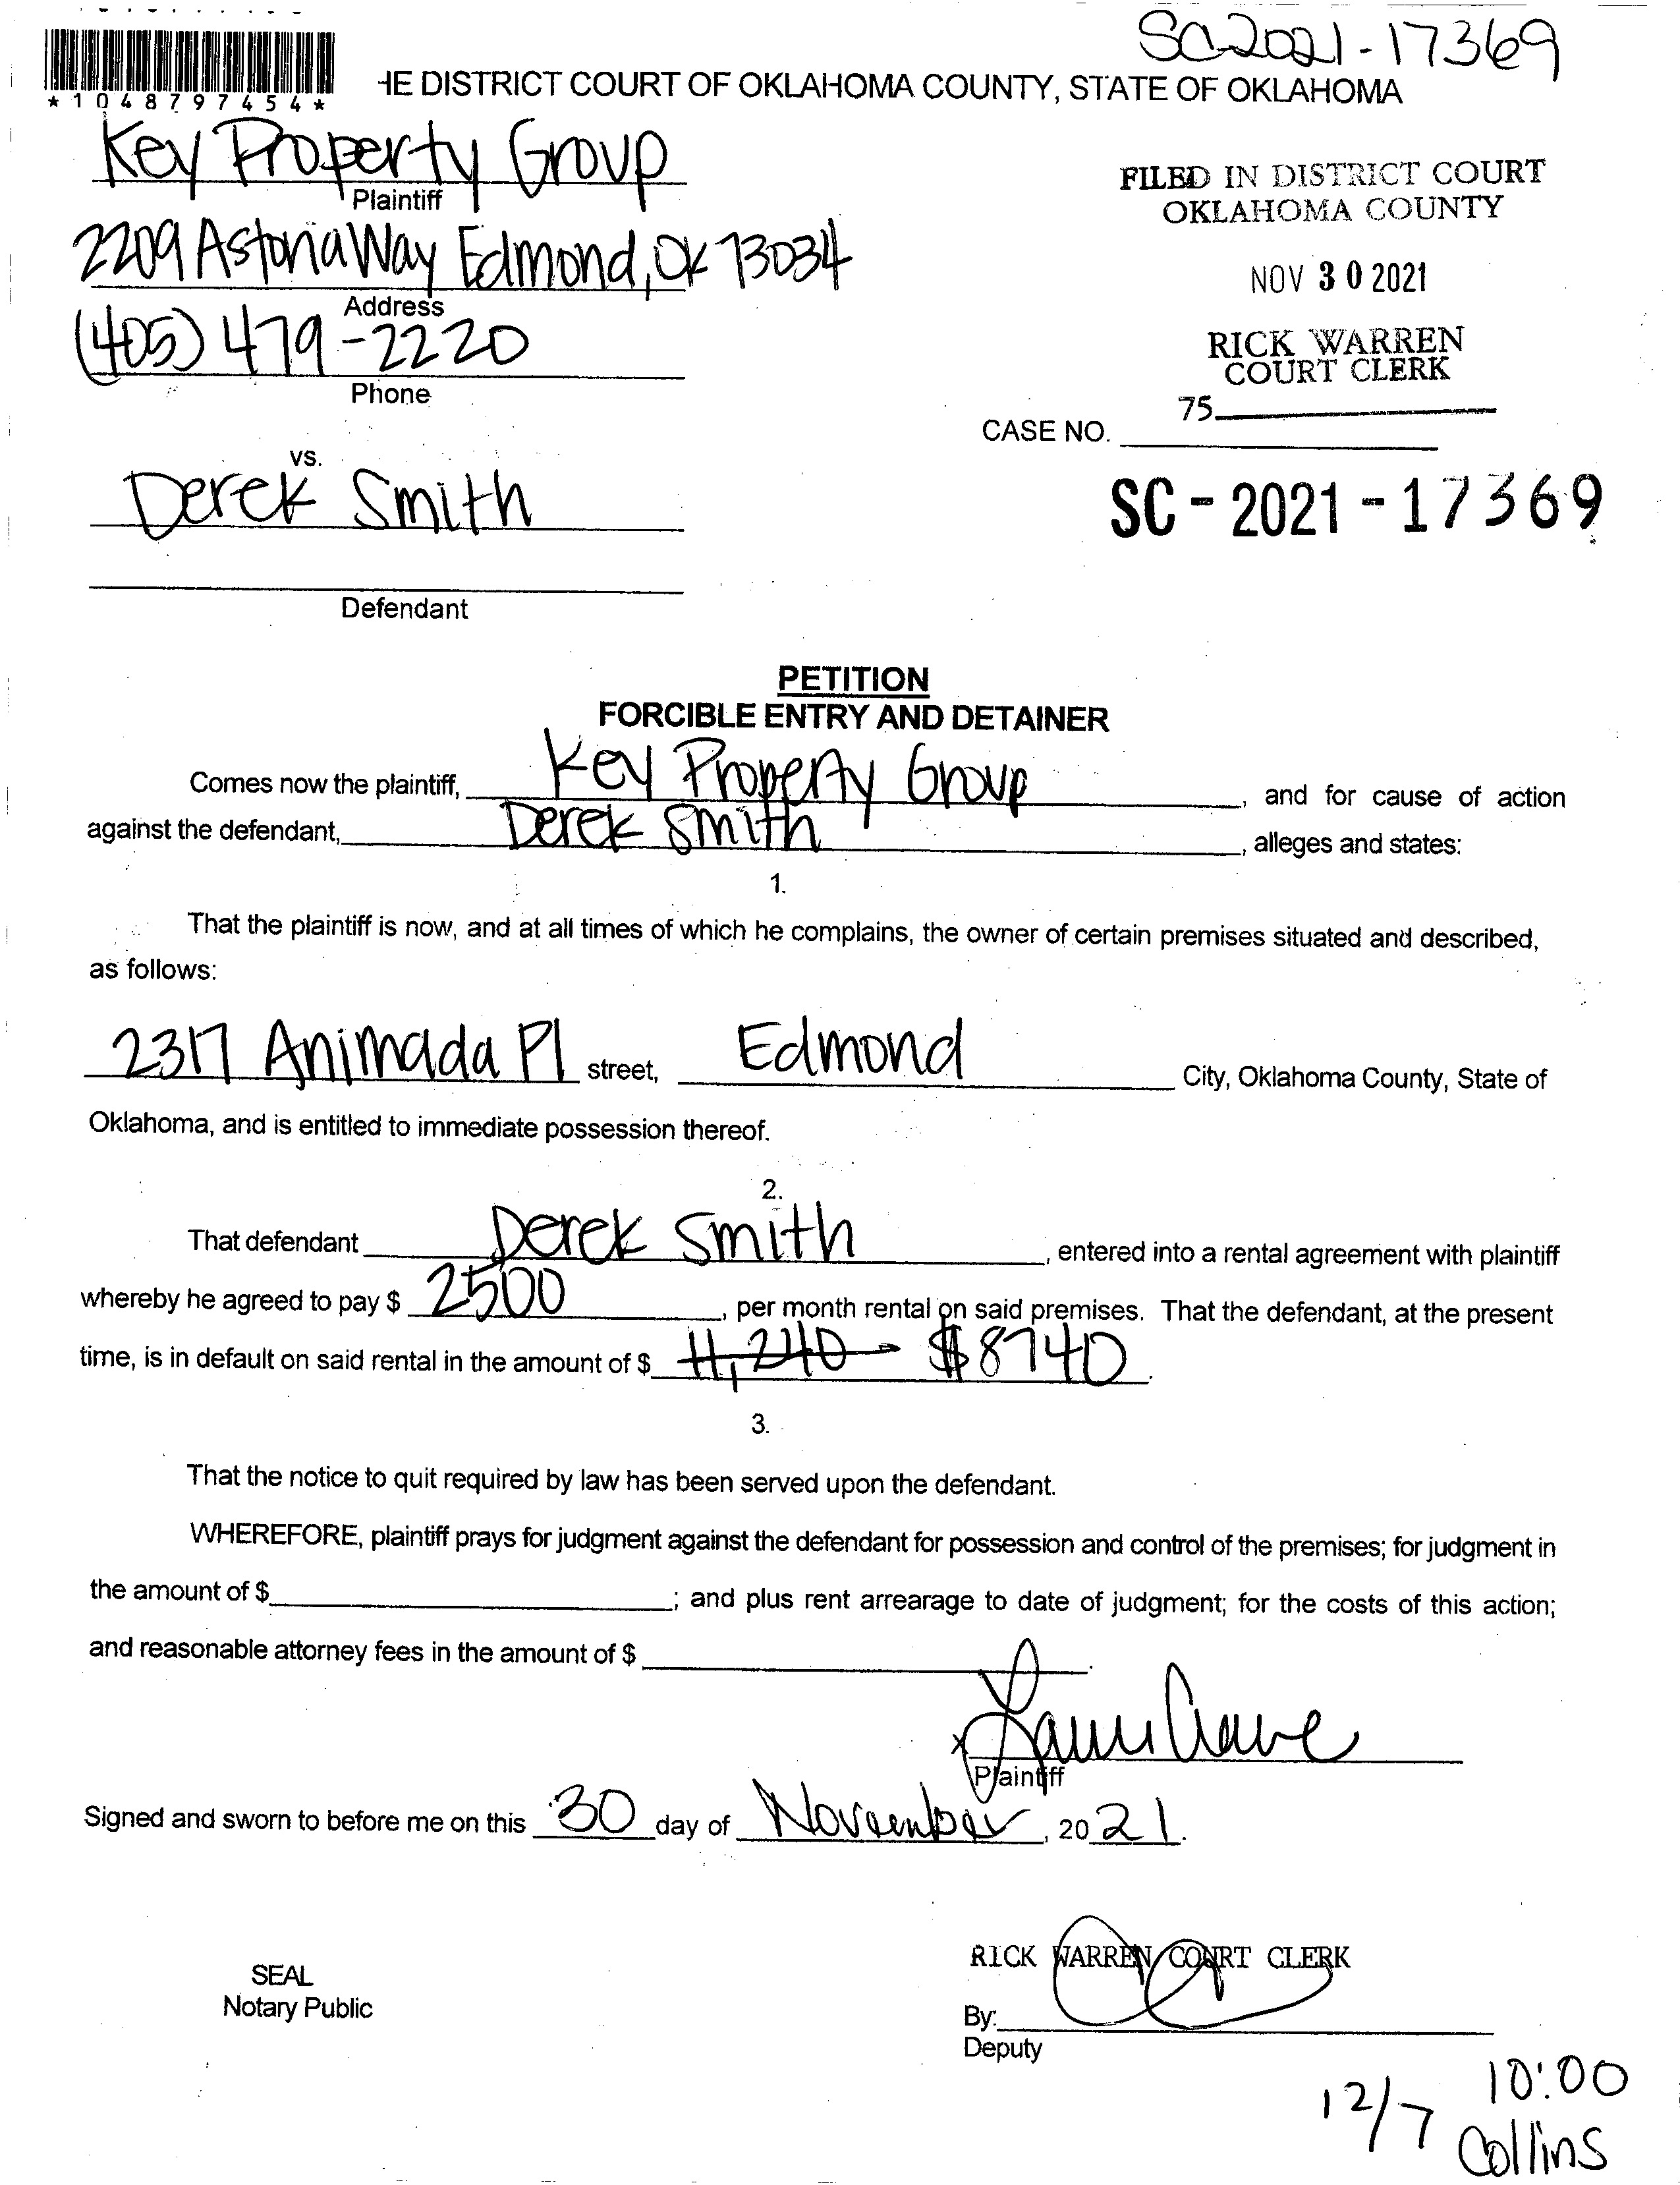 SC-2021-17369
*1048797454*
HE DISTRICT COURT OF OKLAHOMA COUNTY, STATE OF OKLAHOMA
Key Property Group
Plaintiff
2209 Astoria Way Edmond, OK 73034
Address
(405) 479-2220
Phone
FILED IN DISTRICT COURT
OKLAHOMA COUNTY
NOV 30 2021
RICK WARREN
COURT CLERK
75
CASE NO.
SC-2021-17369
vs.
Derek Smith
Defendant
PETITION
FORCIBLE ENTRY AND DETAINER
Comes now the plaintiff, Key Property Group, and for cause of action
against the defendant, Derek Smith, alleges and states:
1.
That the plaintiff is now, and at all times of which he complains, the owner of certain premises situated and described,
as follows:
2317 Animada Pl street, Edmond City, Oklahoma County, State of
Oklahoma, and is entitled to immediate possession thereof.
2.
That defendant Derek Smith, entered into a rental agreement with plaintiff
whereby he agreed to pay $ 2500, per month rental on said premises. That the defendant, at the present
time, is in default on said rental in the amount of $ 11,240 $8740.
3.
That the notice to quit required by law has been served upon the defendant.
WHEREFORE, plaintiff prays for judgment against the defendant for possession and control of the premises; for judgment in
the amount of $ ; and plus rent arrearage to date of judgment; for the costs of this action;
and reasonable attorney fees in the amount of $ .
x
Plaintiff
Signed and sworn to before me on this 30 day of November, 2021.
SEAL
Notary Public
RICK WARREN COURT CLERK
By:
Deputy
12/7 10:00
Collins